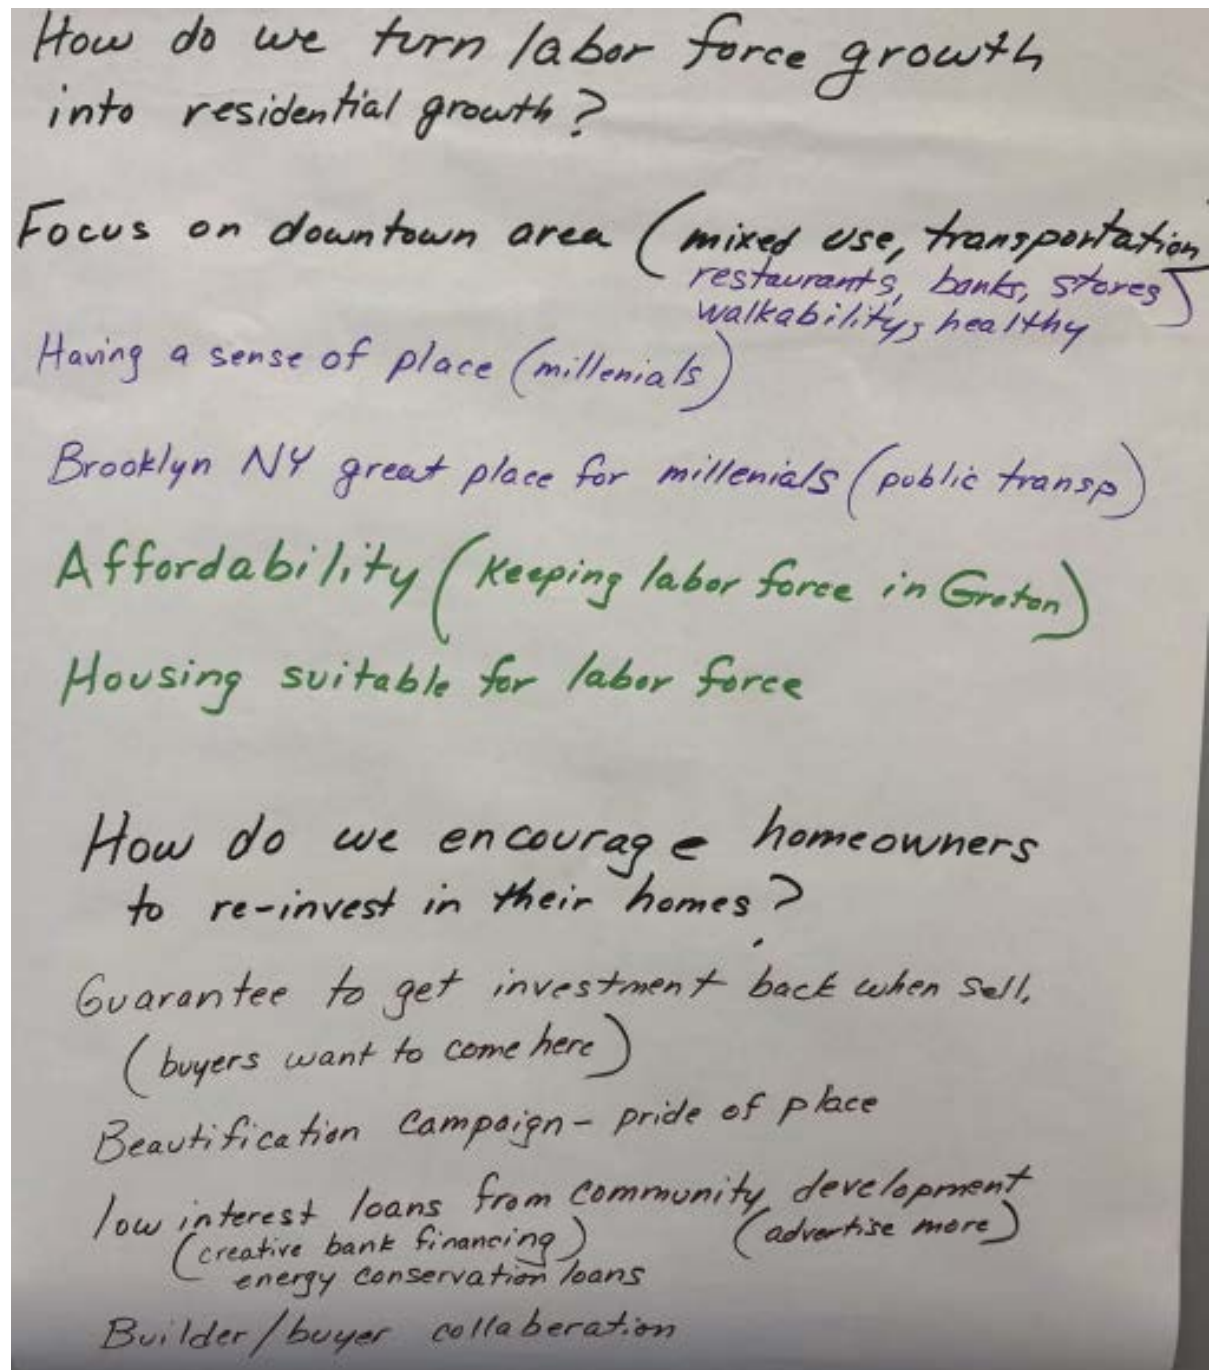 How do we turn labor force growth
into residential growth?
Focus on downtown area (mixed use, transportation
restaurants, banks, stores)
walkability, healthy
Having a sense of place (millenials)
Brooklyn NY great place for millenials (public transp)
Affordability (Keeping labor force in Groton)
Housing suitable for labor force
How do we encourage homeowners
to re-invest in their homes?
Guarantee to get investment back when sell,
(buyers want to come here)
Beautification Campaign - pride of place
low interest loans from community development
(creative bank financing) (advertise more)
energy conservation loans
Builder/buyer collaberation